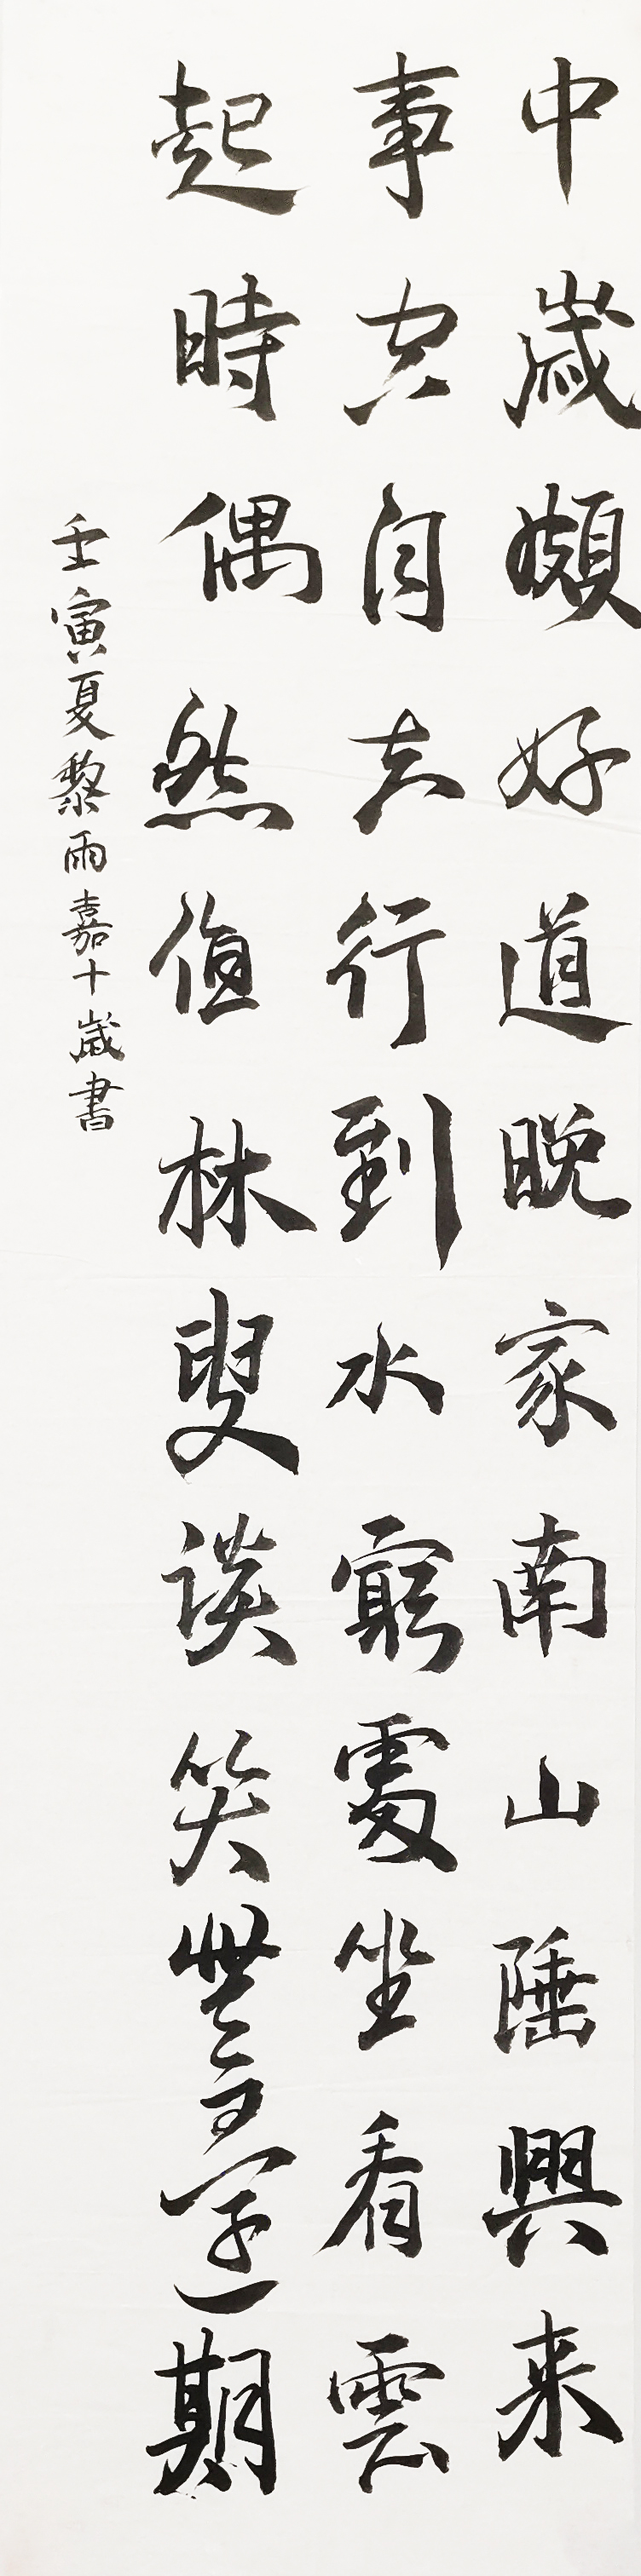 中歲頗好道晚家南山陲興来
事空自知行到水窮處坐看雲
起時偶然值林叟談笑無還期
壬寅夏黎雨嘉十歲書